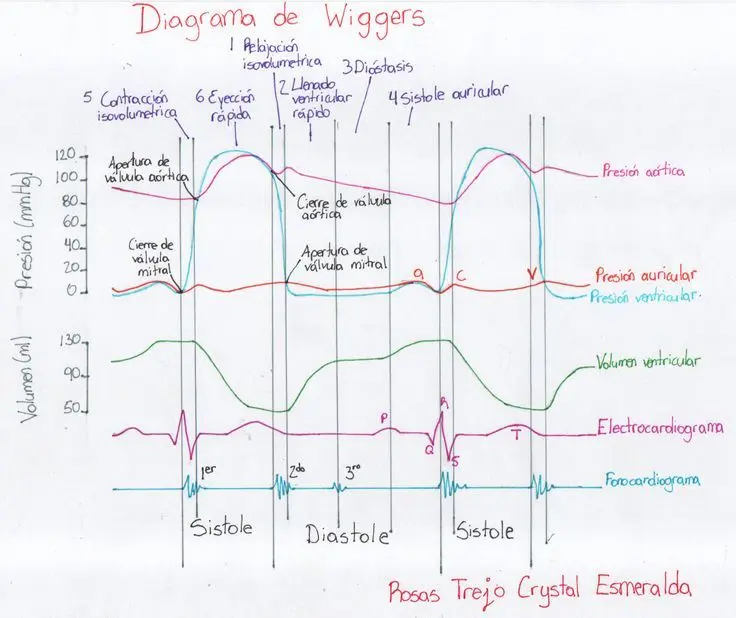 Diagrama de Wiggers
1 Relajación
isovolumetrica
2 Llenado
ventricular
rápido
3 Diástasis
4 Sistole auricular
5 Contracción
isovolumetrica
6 Eyección
rápida
Presión (mmHg)
120
100
80
60
40
20
0
Apertura de
válvula aórtica
Cierre de válvula
aórtica
Cierre de
válvula
mitral
Apertura de
válvula mitral
a
C
V
Presión aórtica
Presión auricular
Presión ventricular.
Volumen (ml)
130
90
50
Volumen ventricular
P
R
Q
S
T
Electrocardiograma
1er
2do
3ro
Fonocardiograma
Sistole
Diastole
Sistole
Rosas Trejo Crystal Esmeralda